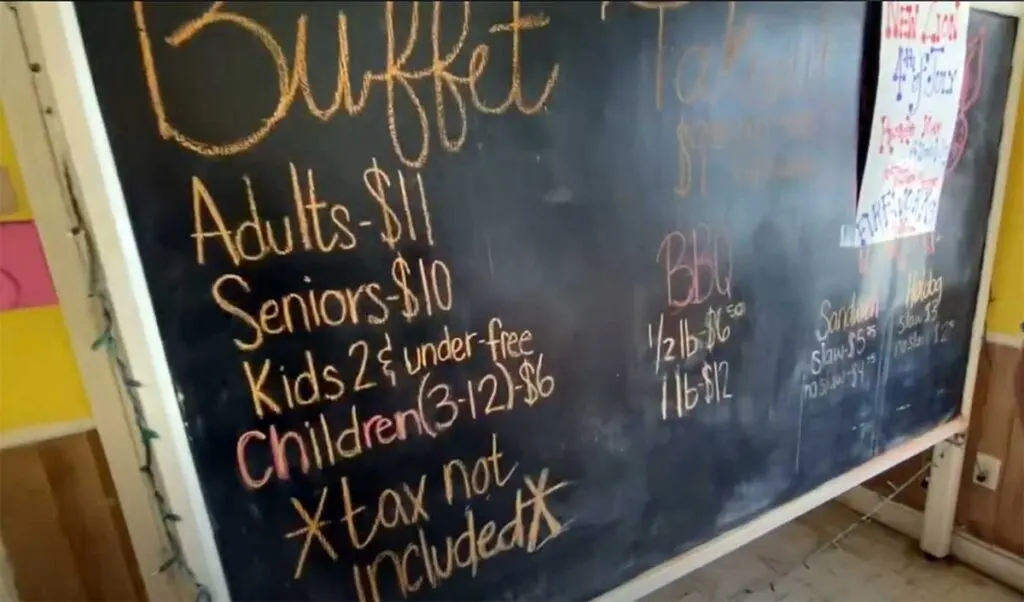 Buffet
Adults-$11
Seniors-$10
Kids 2 & under-free
Children(3-12)-$6
*tax not
included*
BBQ
1/2 lb-$6.50
1 lb-$12
Sandwich
slaw-$5.75
no slaw-$4.75
Hotdog
slaw $3
no slaw $2
New Zion
4th of July
FIREWORKS